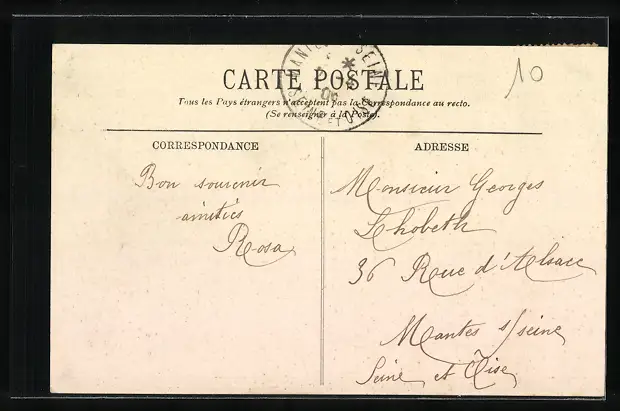 CARTE POSTALE
10
Tous les Pays étrangers n'acceptent pas la Correspondance au recto.
(Se renseigner à la Poste).
CORRESPONDANCE
ADRESSE
Bon souvenir
amitiés
Rosa
Monsieur Georges
Lhobeth
36 Rue d'Alsace
Mantes s/seine
Seine et Oise